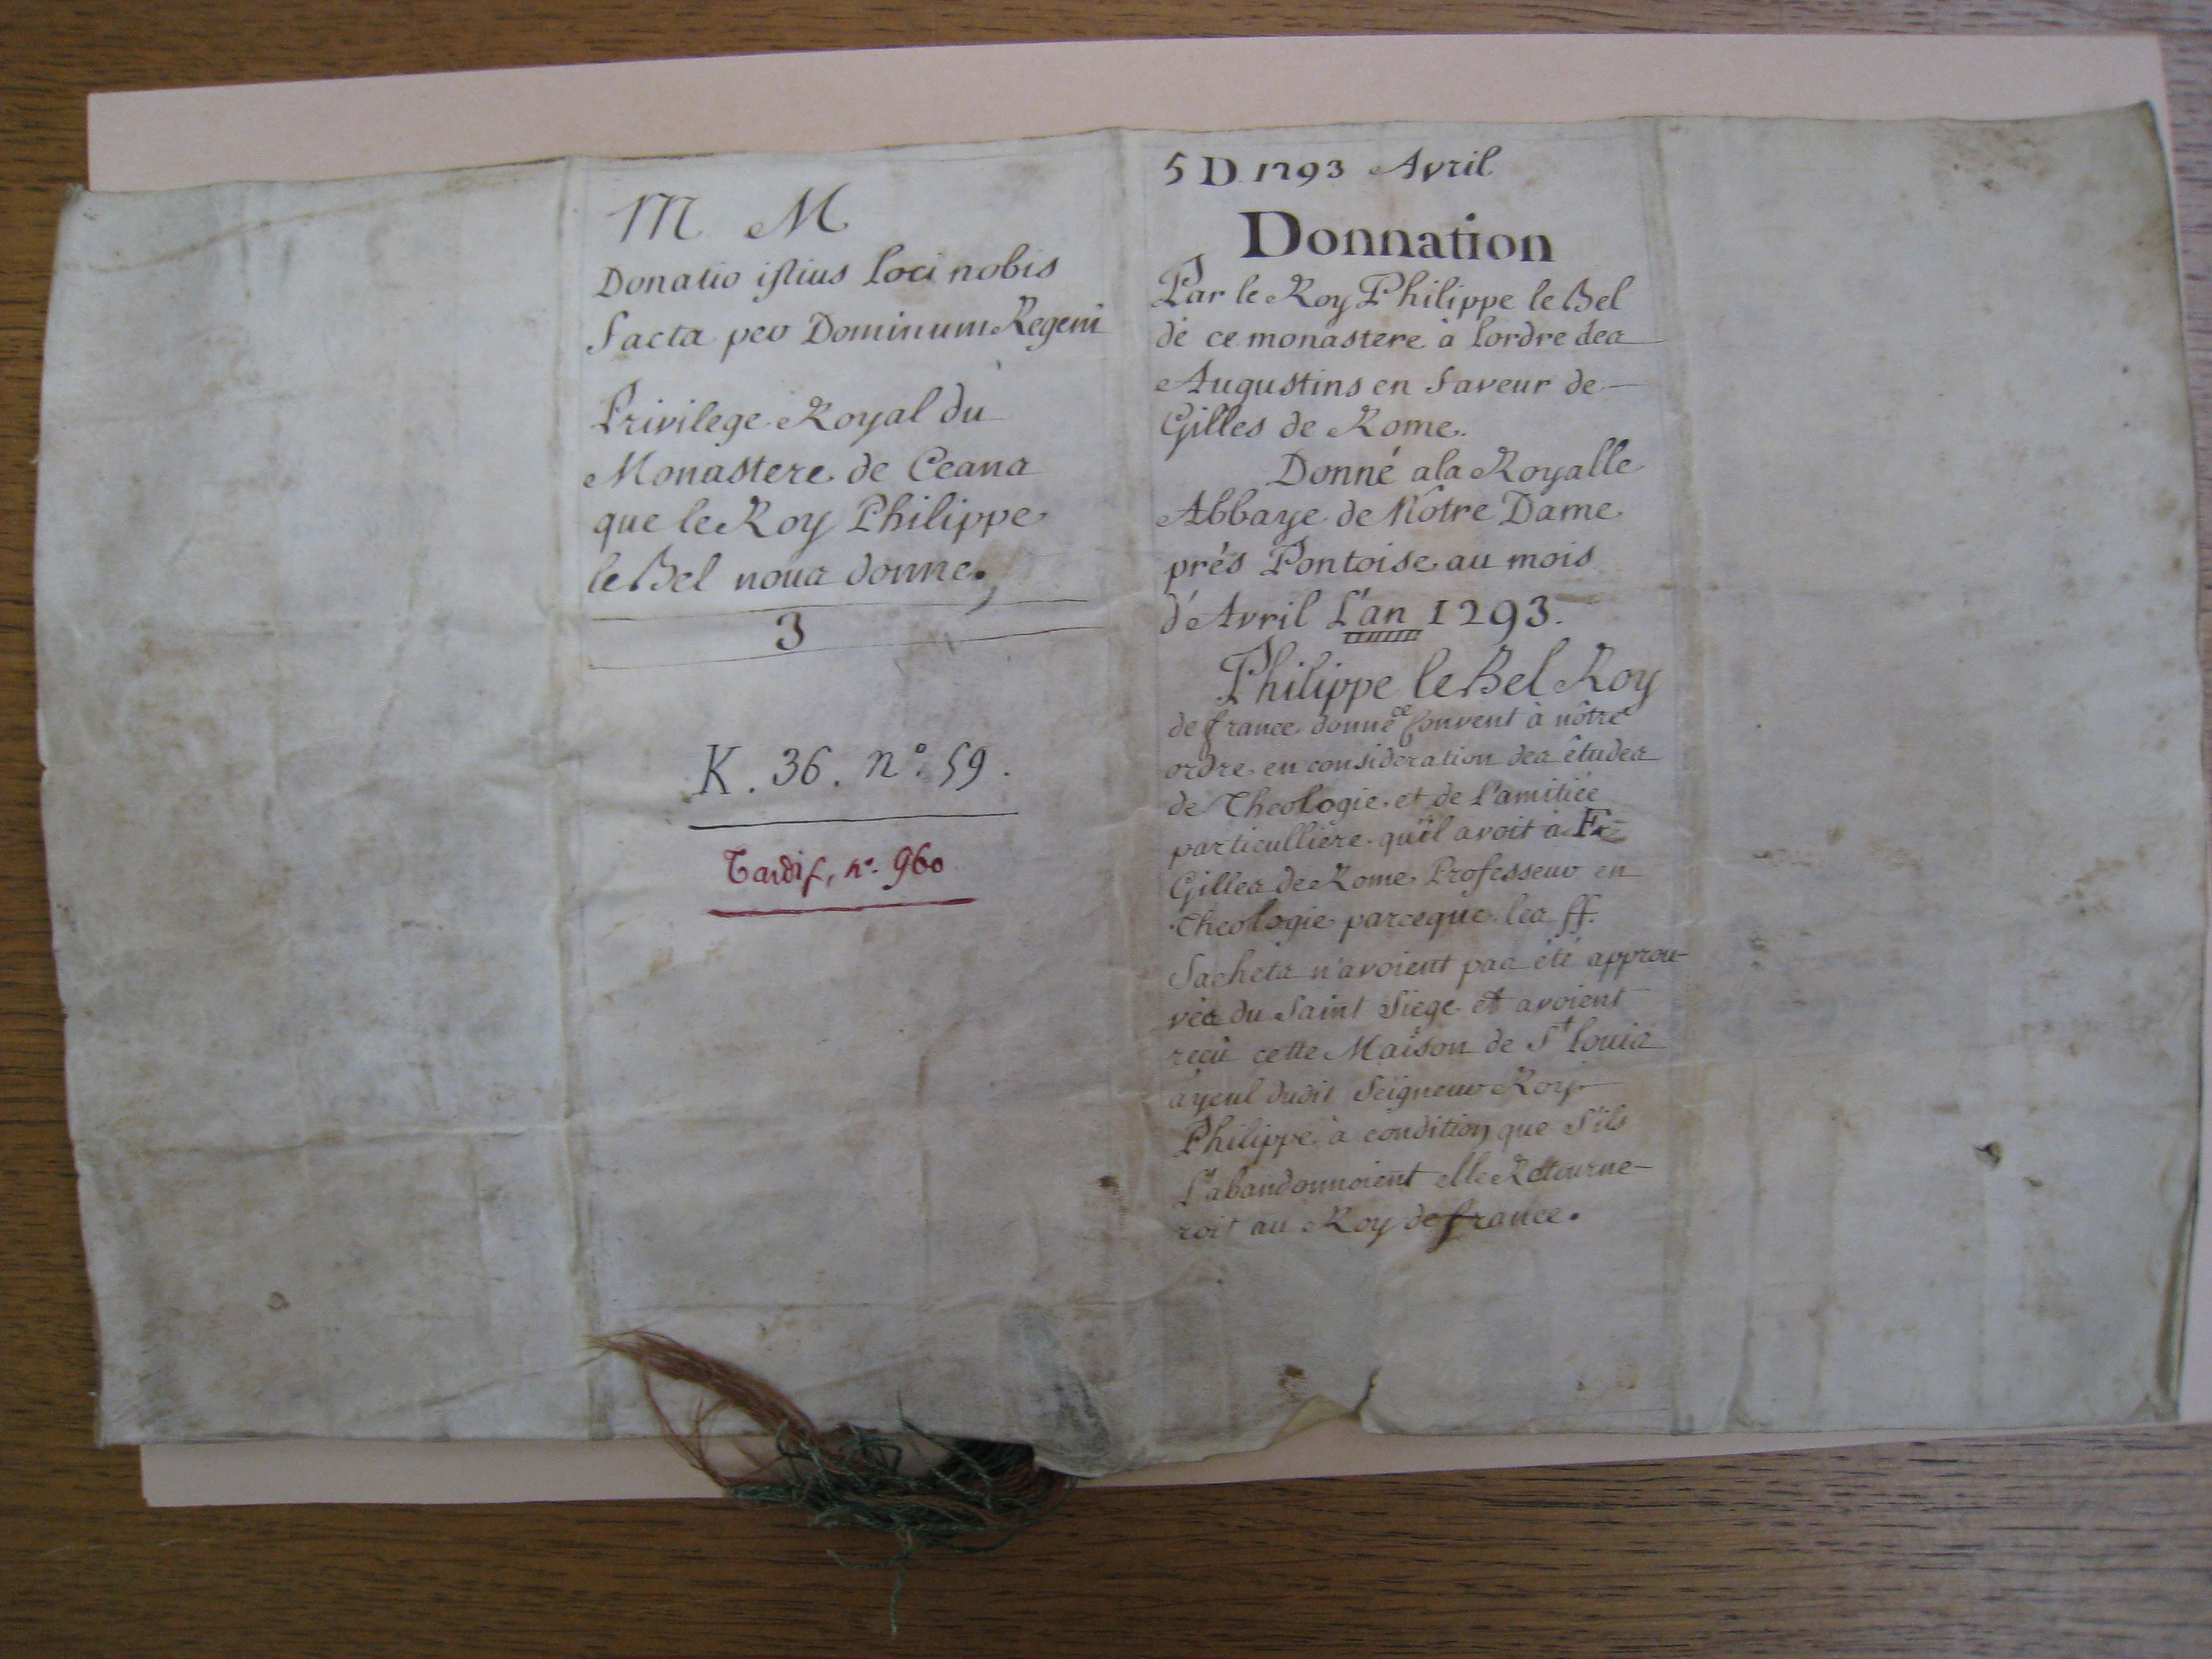 M M
Donatio istius loci nobis
facta per Dominum Regem
Privilege Royal du
Monastere de Ceans
que le Roy Philippe
le Bel nous donne.
3
K. 36. n° 59.
Tardif, n° 960
5 D 1293 Avril
Donnation
Par le Roy Philippe le Bel
de ce monastere à lordre des
Augustins en faveur de
Gilles de Rome.
Donné ala Royalle
Abbaye de Nôtre Dame
prés Pontoise au mois
d'Avril L'an 1293.
Philippe le Bel Roy
de france donne ce Convent à nôtre
ordre en consideration des études
de Theologie et de l'amitiée
particulliére qu'il avoit à Fr
Gilles de Rome Professeur en
Theologie parceque les ff.
Sachets n'avoient pas été approu-
vés du Saint Siege et avoient
reçû cette Maison de St louis
ayeul dudit Seigneur Roy
Philippe à condition que S'ils
L'abandonnoient elle Retourne-
roit au Roy de france.